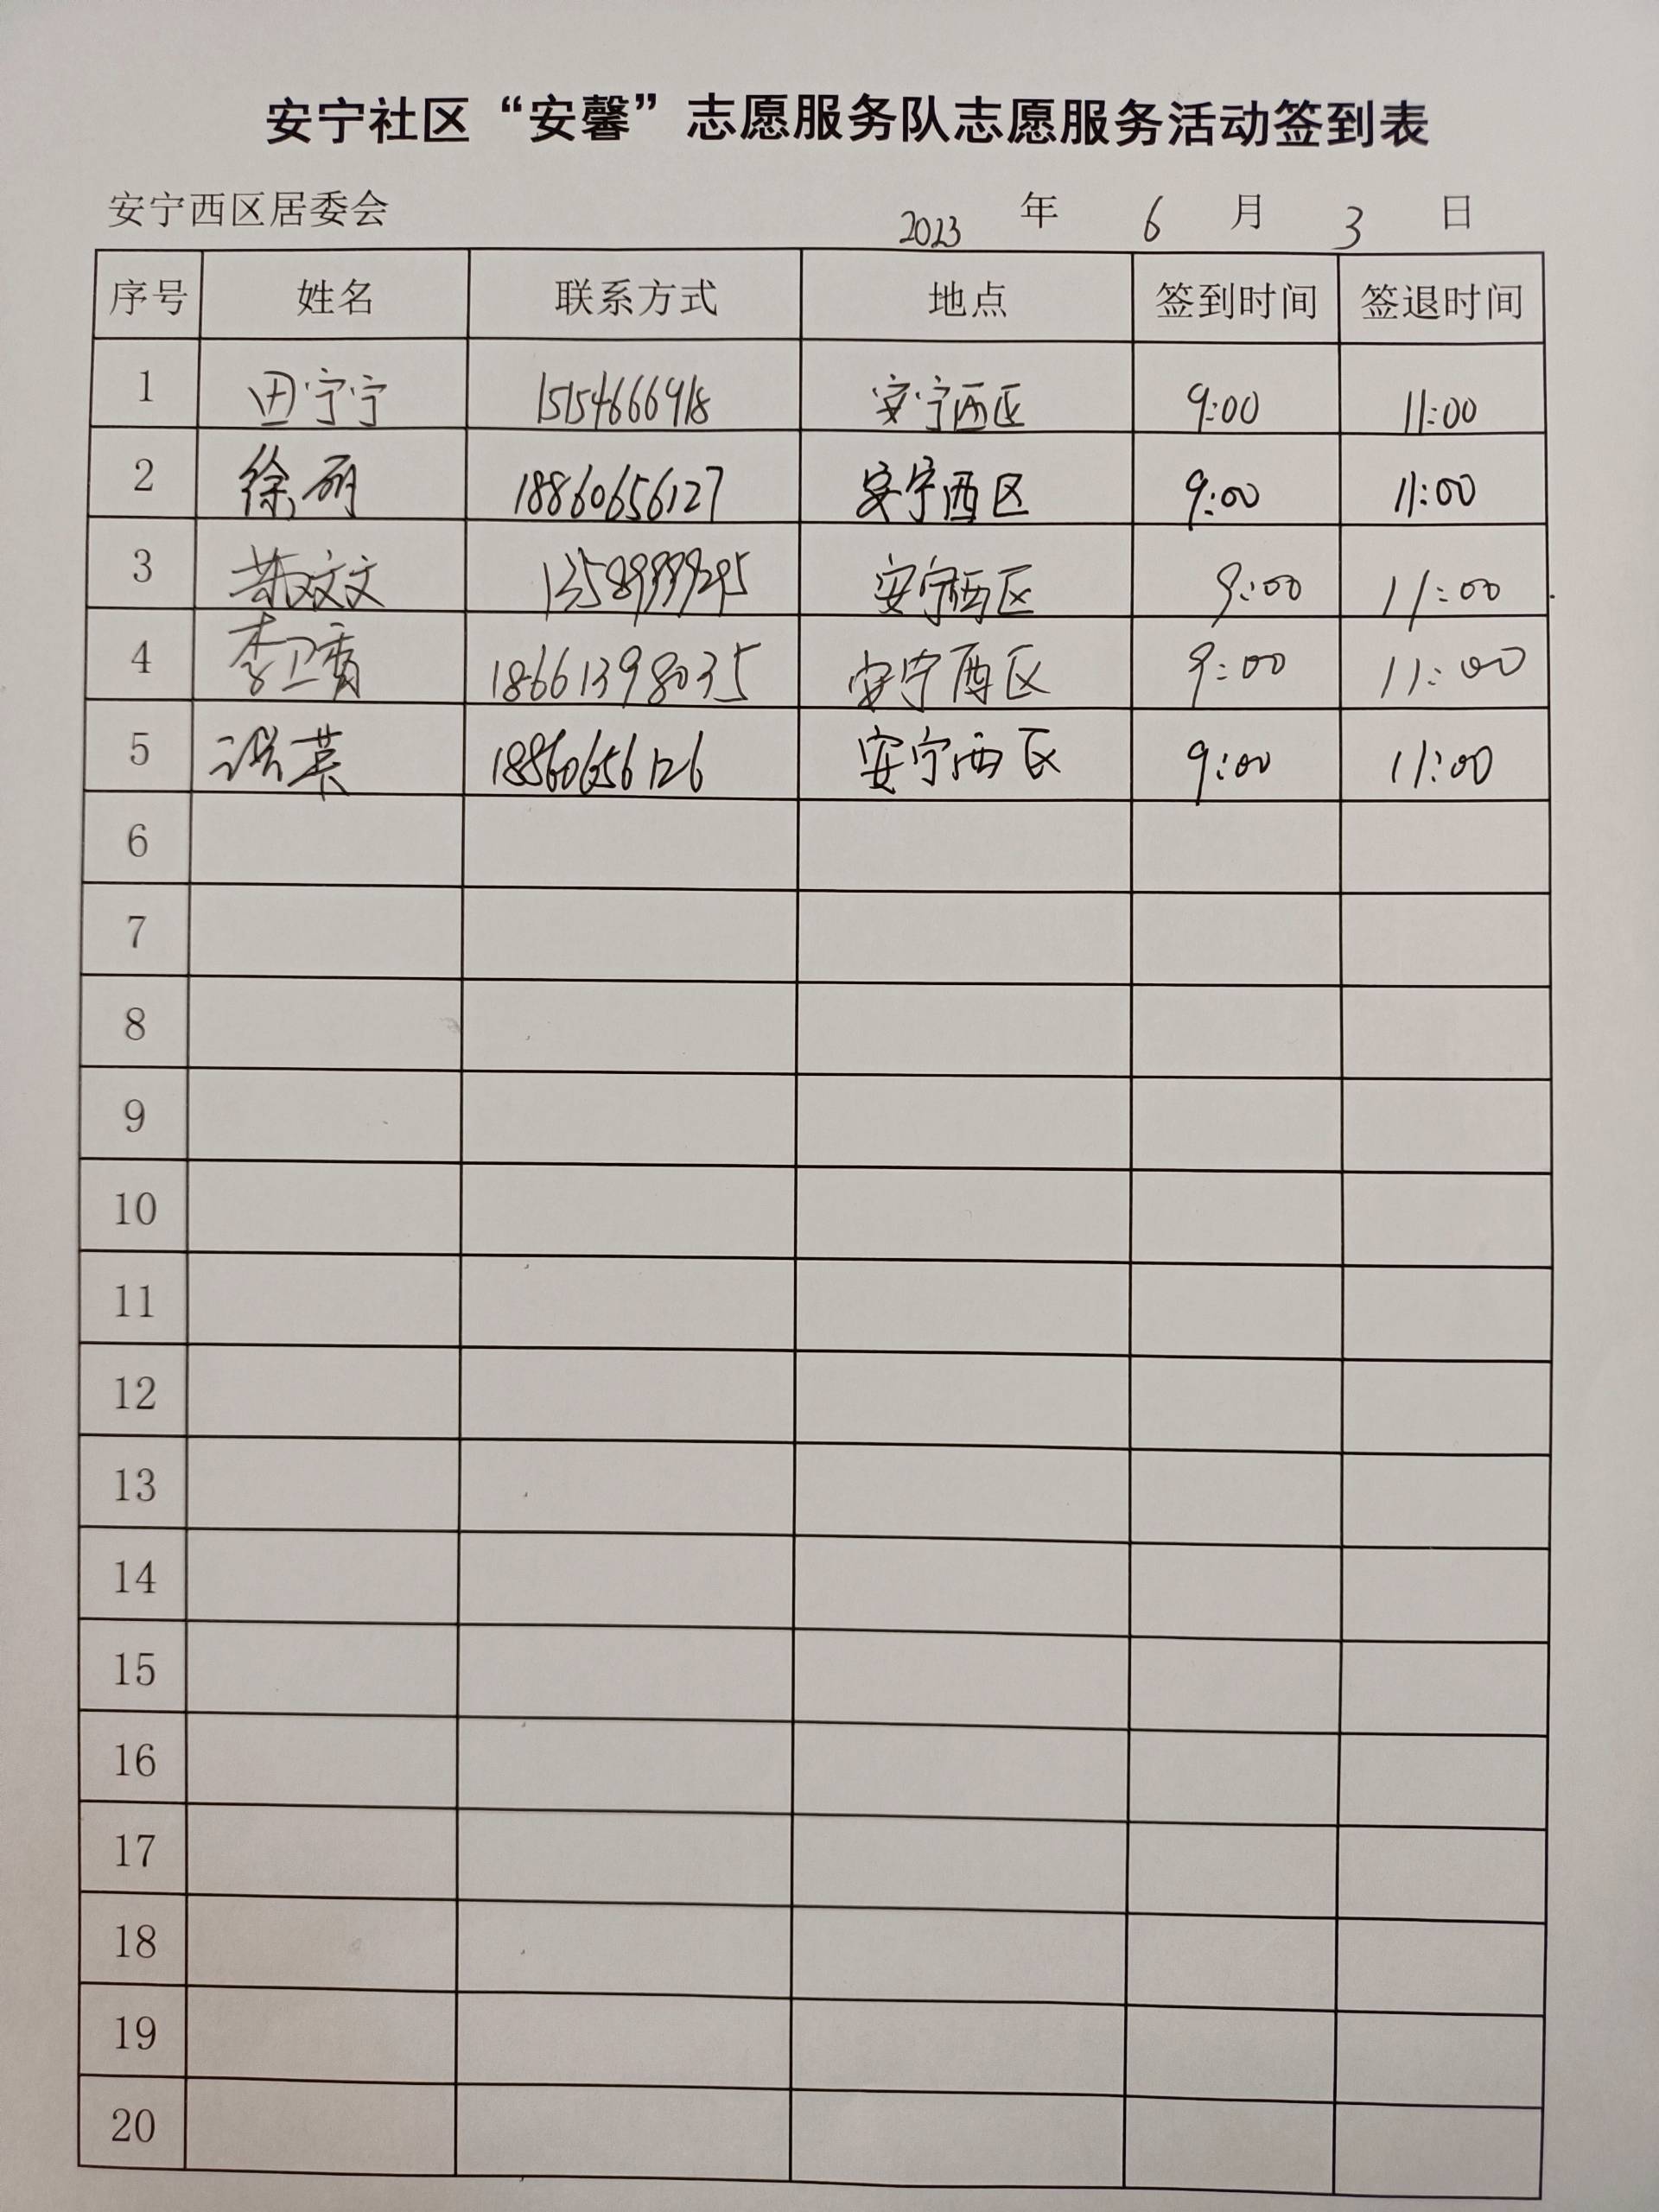 安宁社区“安馨”志愿服务队志愿服务活动签到表
安宁西区居委会 2023 年 6 月 3 日
序号 姓名 联系方式 地点 签到时间 签退时间
1 田宁宁 15154666918 安宁西区 9:00 11:00
2 徐丽 18860656127 安宁西区 9:00 11:00
3 文文 安宁西区 9:00 11:00
4 李卫秀 18661398035 安宁西区 9:00 11:00
5 洪英 18860656126 安宁西区 9:00 11:00
6
7
8
9
10
11
12
13
14
15
16
17
18
19
20